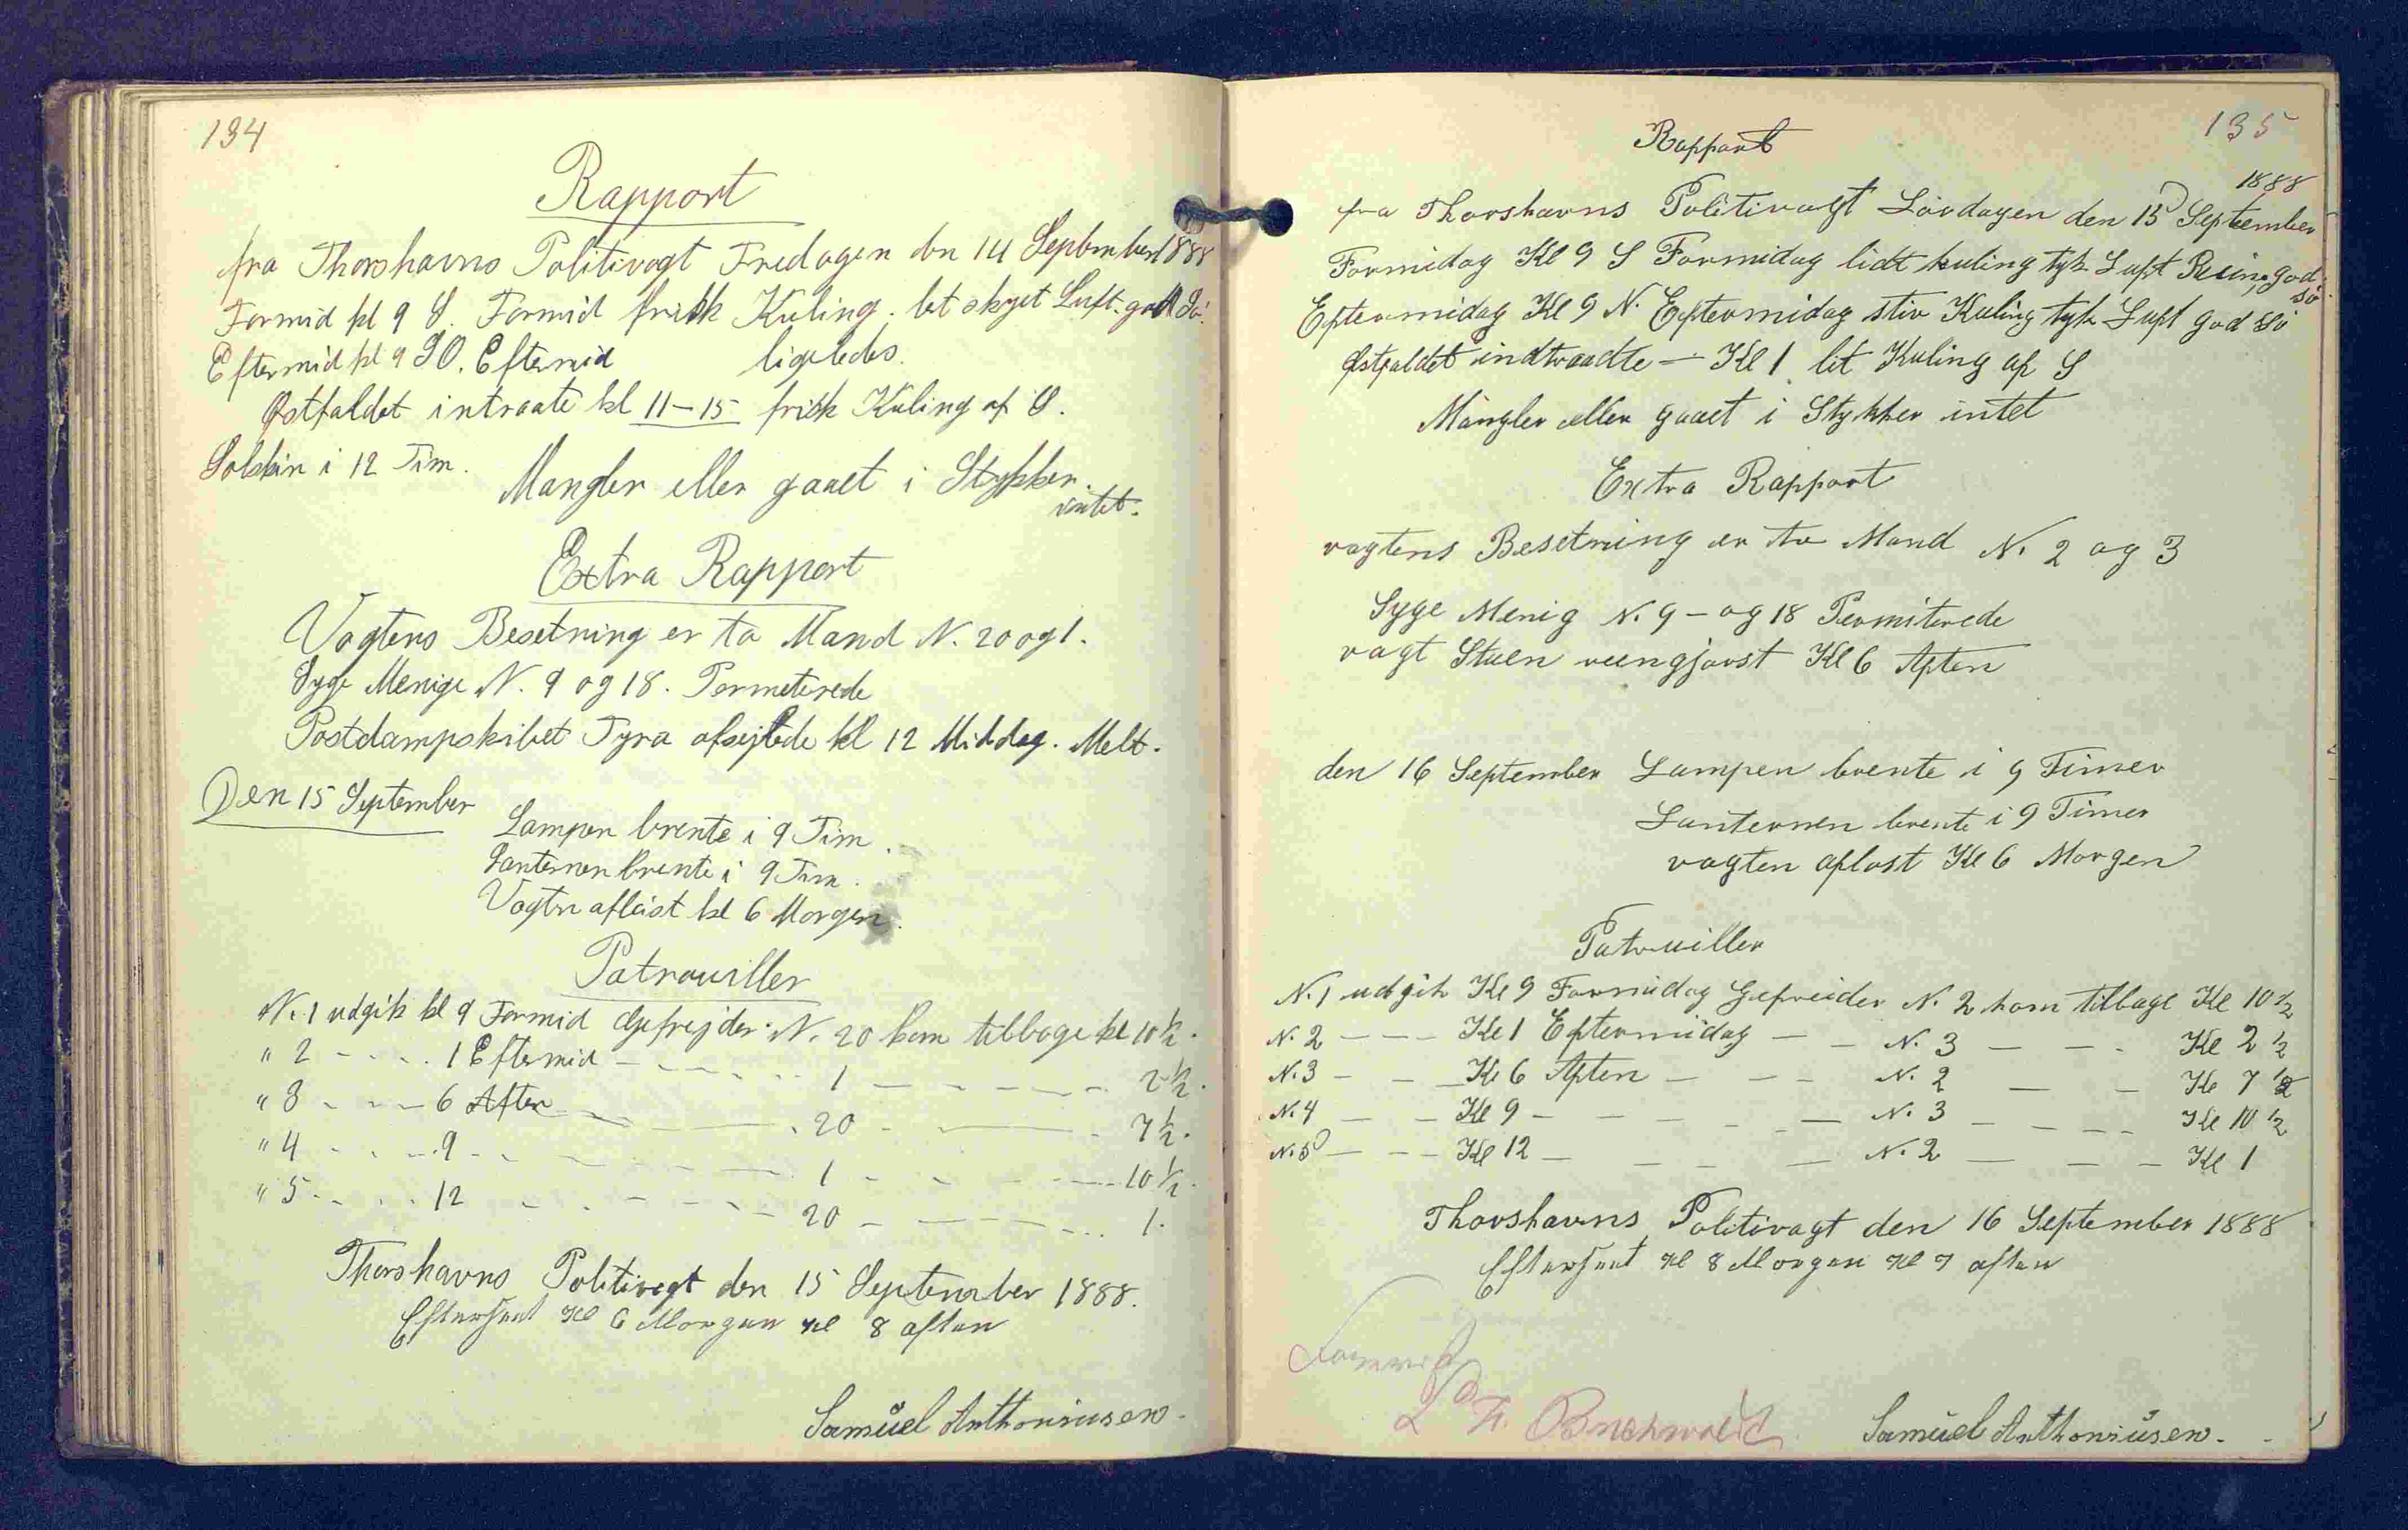 134
Rapport
fra Thorshavns Politivagt Fredagen den 14 September 1888
Formid kl 9 S. Formid frisk Kuling. let skyet Luft. godt Sö.
Eftermid kl 9 SO. Eftermid ligeledes.
Østfaldet intraate kl 11-15 frisk Kuling af S.
Solskin i 12 Tim.
Mangler eller gaaet i Stykker.
intet.
Extra Rapport
Vagtens Besetning er to Mand N. 20 og 1.
Syge Menige N. 9 og 18. Permeterede
Postdampskibet Tyra afsejlede kl 12 Middag. Melt.
Den 15 September
Lampen brente i 9 Tim.
Lanternen brente i 9 Tim.
Vagtn afløist kl 6 Morgen.
Patrouiller
N. 1 udgik kl 9 Formid Gefrejder N. 20 kom tilbage kl 10 1/2.
" 2 - - - . 1 Eftermid - - - - - 1 - - - - - 2 1/2.
" 3 - - - 6 Aften - - - - 20 - - - 7 1/2.
" 4 - - - 9 - - - - - 1 - - - - 10 1/2.
" 5 - - - 12 - - - - - 20 - - - - 1.
Thorshavns Politivagt den 15 September 1888.
Eftersent Kl 6 Morgen Kl 8 aften
Samüel Anthoniusen.
135
Rapport
1888
fra Thorshavns Politivagt Lövdagen den 15 September
Formidag Kl 9 S Formidag lidt kuling tyk Luft Reign god
sö
Eftermidag Kl 9 N. Eftermidag stiv Kuling tyk Luft god sö
Østfaldet indtraadte - Kl 1 let Kuling af S
Mangler eller gaaet i Stykker intet
Extra Rapport
vagtens Besetning er to Mand N. 2 og 3
Syge Menig N. 9 - og 18 Permiterede
vagt Stuen reengjorst Kl 6 Aften
den 16 September Lampen brente i 9 Timer
Lanternen brente i 9 Timer
vagten aflost Kl 6 Morgen
Patruiller
N. 1 udgik Kl 9 Formidag Gefreider N. 2 kom tilbage Kl 10 1/2
N. 2 - - - Kl 1 Eftermidag - - N. 3 - - - Kl 2 1/2
N. 3 - - - Kl 6 Aften - - - N. 2 - - Kl 7 1/2
N. 4 - - Kl 9 - - - - - N. 3 - - - - Kl 10 1/2
N. 5 - - - Kl 12 - - - - N. 2 - - - Kl 1
Thorshavns Politivagt den 16 September 1888
Eftersent Kl 8 Morgen Kl 7 aften
F. Buchwald
Samüel Anthoniüsen.